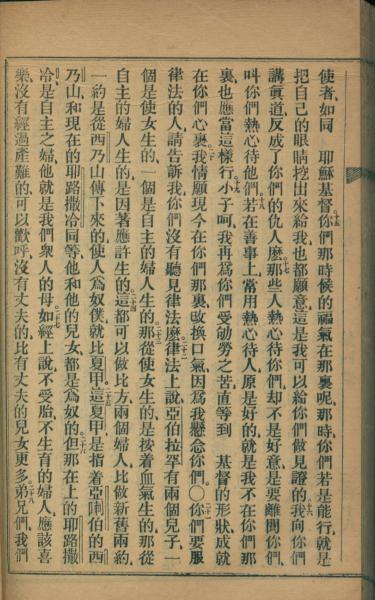 使者、如同 耶穌基督你們那時候的福氣在那裏呢、那時、你們若是能行、就是
十五
把自己的眼睛挖出來給我、也都願意、這是我可以給你們做見證的、我向你們
十六
講眞道、反成了你們的仇人麽、那些人熱心待你們、却不是好意、是要離間你們、
十七
叫你們熱心待他們、若在善事上、常用熱心待人、原是好的、就是我不在你們那
十八
裏、也應當這樣行、小子呵、我再爲你們受劬勞之苦、直等到 基督的形狀成就
十九
在你們心裏、我情願現今在你們那裏、改換口氣、因爲我懸念你們、○你們要服
二十
二十一
律法的人、請告訴我、你們沒有聽見律法麽、律法上說、亞伯拉罕有兩個兒子、一
二十二
個是使女生的、一個是自主的婦人生的、那從使女生的、是按着血氣生的、那從
二十三
自主的婦人生的、是因著應許生的、這都可以做比方、兩個婦人、比做新舊兩約、
二十四
一約是從西乃山傳下來的、使人爲奴僕、就比夏甲、這夏甲、是指着亞喇伯的西
二十五
乃山、和現在的耶路撒冷同等、他和他的兒女都是爲奴的、但那在上的耶路撒
二十六
冷、是自主之婦、他就是我們衆人的母、如經上說、不受胎、不生育的婦人、應該喜
二十七
樂、沒有經過產難的、可以歡呼、沒有丈夫的、比有丈夫的兒女更多、弟兄們、我們
二十八